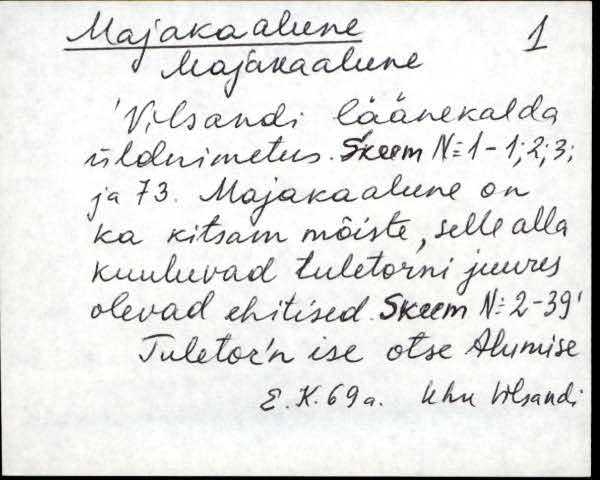 Majakaalune 1
Majakaalune
'Vilsandi läänekalda
üldnimetus. Skeem N:1-1; 2; 3;
ja 73. Majakaalune on
ka kitsam mõiste, selle alla
kuuluvad tuletorni juures
olevad ehitised. Skeem N:2-39'
Tuletor'n ise otse Alumise
E. K. 69 a. Khn Vilsandi